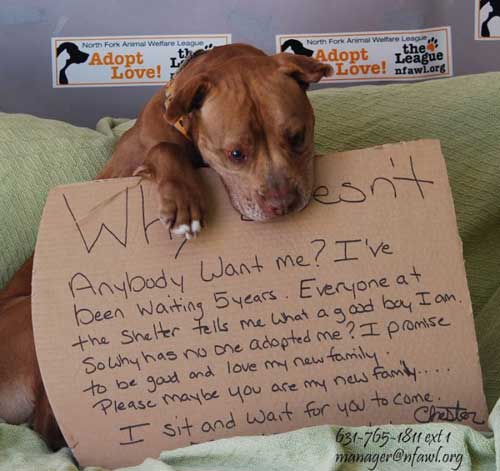 North Fork Animal Welfare League
Adopt
Love!
North Fork Animal Welfare League
Adopt the
Love! League
nfawl.org
Anybody Want me? I've
been waiting 5 years. Everyone at
the Shelter tells me what a good boy I am.
So why has no one adopted me? I promise
to be good and love my new family.
Please maybe you are my new family.....
I sit and wait for you to come.
Chester
631-765-1811 ext 1
manager@nfawl.org